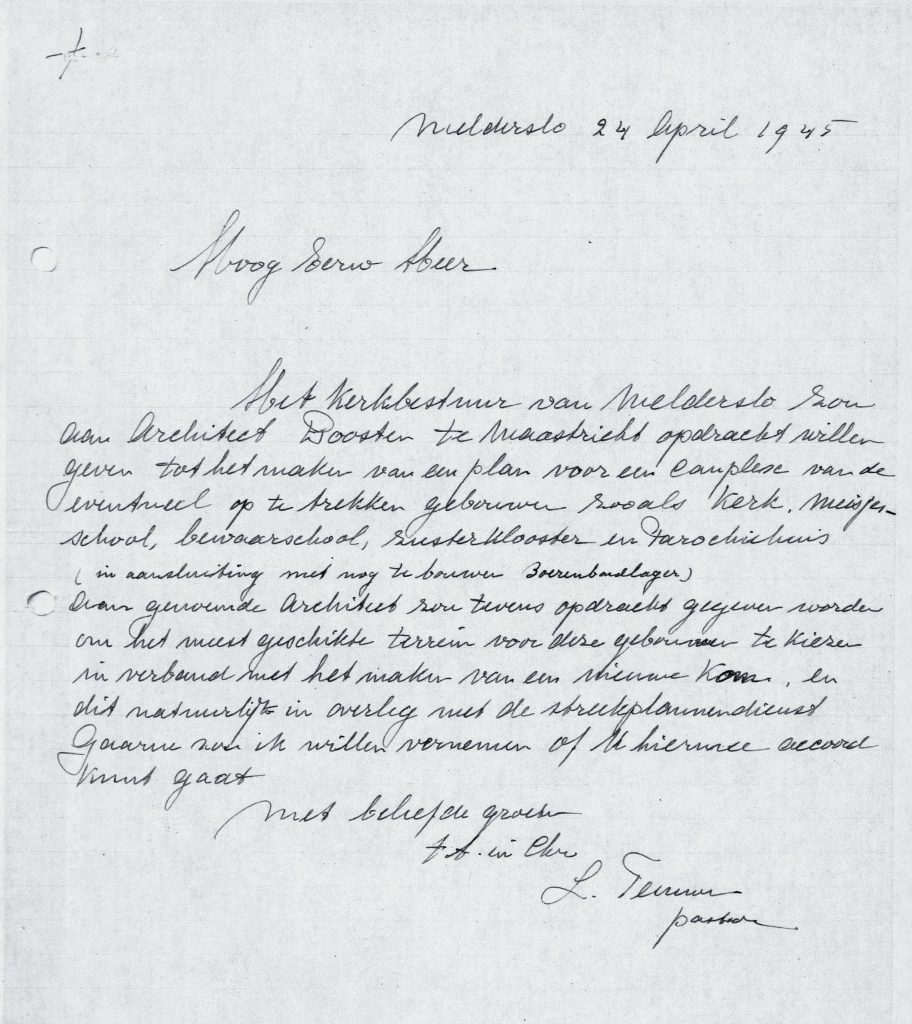 Melderslo 24 April 1945
Hoog Eerw Heer
Het Kerkbestuur van Melderslo zou
aan Architect Boosten te Maastricht opdracht willen
geven tot het maken van een plan voor een complex van de
eventueel op te trekken gebouwen zooals Kerk, meisjes-
school, bewaarschool, zusterklooster en Parochiehuis
(in aansluiting met nog te bouwen Boerenbondlager)
Aan genoemde Architect zou tevens opdracht gegeven worden
om het meest geschikte terrein voor deze gebouwen te kiezen
in verband met het maken van een nieuwe Kom, en
dit natuurlijk in overleg met de streekplannendienst
Gaarne zou ik willen vernemen of U hiermee accoord
kunt gaat
Met beleefde groeten
t.t. in Chr
L.
pastoor